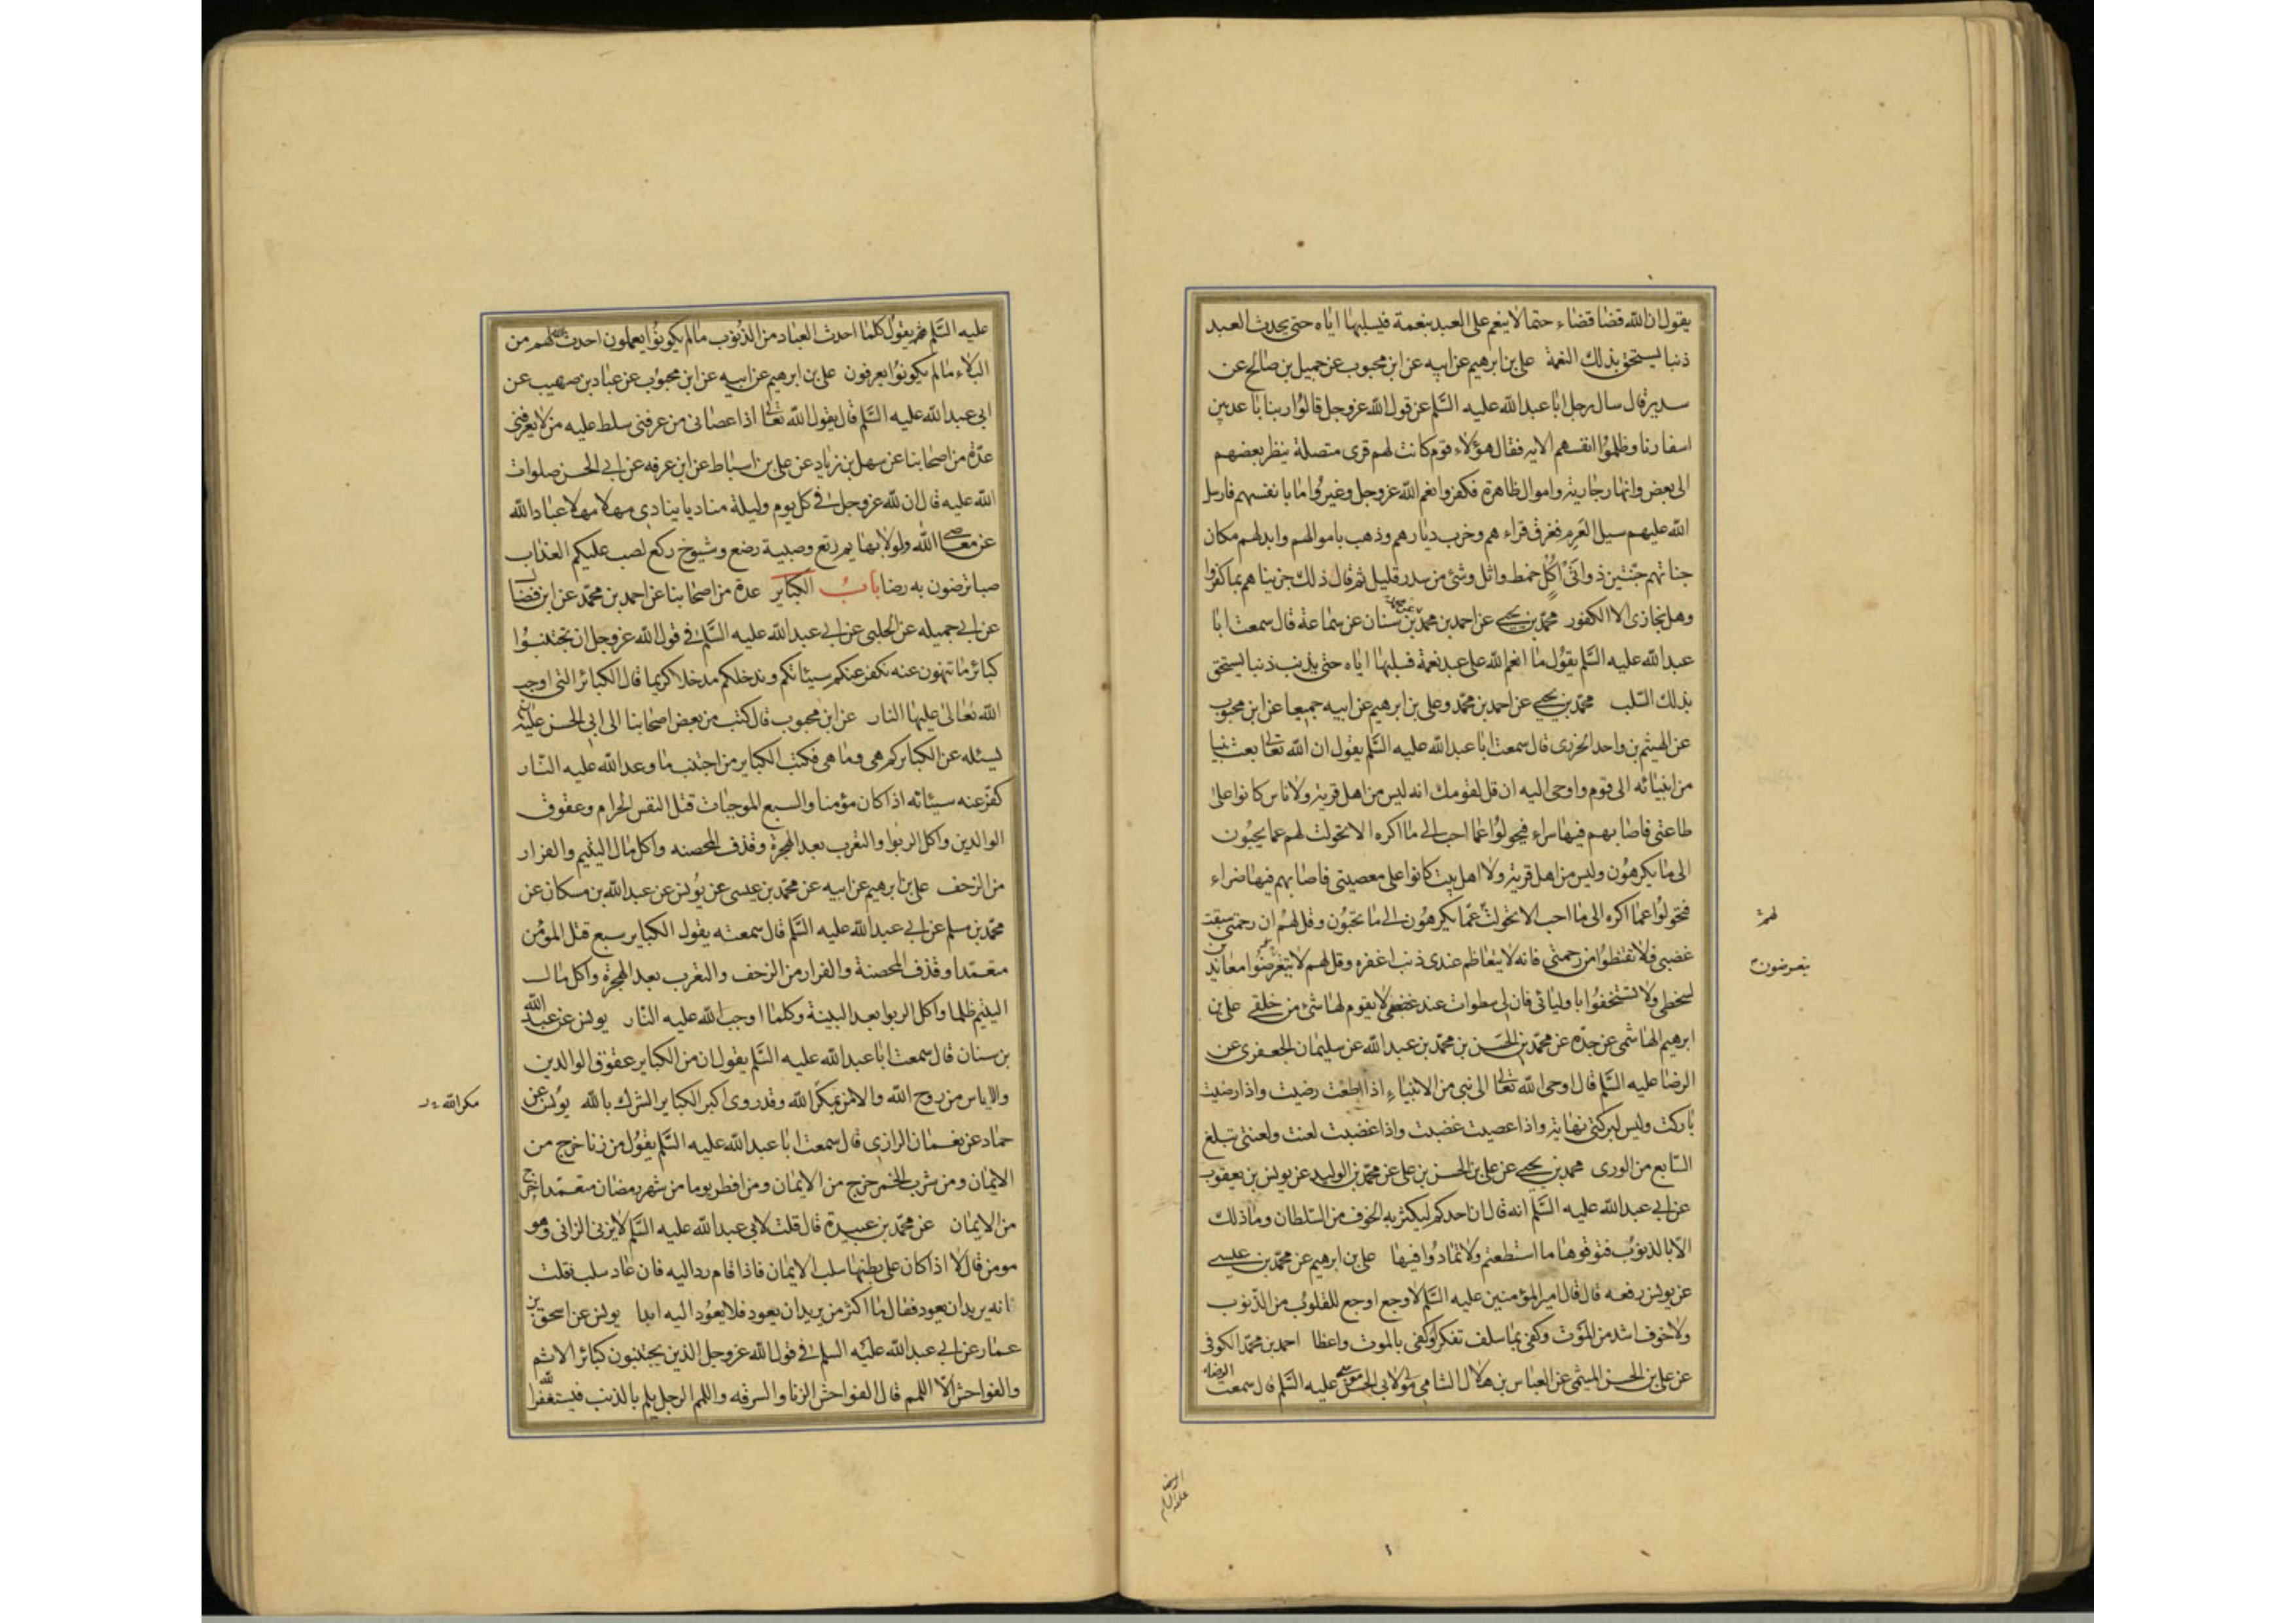 يقول ان الله قضا قضاء حتما لا ينعم على العبد بنعمة فيسلبها اياه حتى يحدث العبد
ذنبا يستحق بذلك النقمة على بن ابرهيم عن ابيه عن ابن محبوب عن جميل بن صالح عن
سدير قال سال رجل ابا عبد الله عليه السلم عن قول الله عز وجل قالوا ربنا باعد بين
اسفارنا وظلموا انفسهم الايه فقال هؤلاء قوم كانت لهم قرى متصلة ينظر بعضهم
الى بعض وانهار جارية واموال ظاهرة فكفروا نعم الله عز وجل وغيروا ما بانفسهم فارسل
الله عليهم سيل العرم فغرق قراءهم وخرب ديارهم وذهب باموالهم وابدلهم مكان
جناتهم جنتين ذواتى اكل خمط واثل وشئ من سدر قليل ثم قال ذلك جزيناهم بما كفروا
وهل نجازى الا الكفور محمد بن يحيى عن احمد بن محمد عن محمد بن سنان عن سماعة قال سمعت ابا
عبد الله عليه السلم يقول ما انعم الله على عبد نعمة فسلبها اياه حتى يذنب ذنبا يستحق
بذلك السلب محمد بن يحيى عن احمد بن محمد وعلى بن ابرهيم عن ابيه جميعا عن ابن محبوب
عن الهيثم بن واحد الخزرى قال سمعت ابا عبد الله عليه السلم يقول ان الله تعالى بعث نبيا
من انبيائه الى قوم واوحى اليه ان قل لقومك انه ليس من اهل قرية ولا ناس كانوا على
طاعتى فاصابهم فيها سراء فيحولوا عما احب الى ما اكره الا تحولت لهم عما يحبون
الى ما يكرهون وليس من اهل قرية ولا اهل بيت كانوا على معصيتى فاصابهم فيها ضراء
فتحولوا عما اكره الى ما احب الا تحولت عما يكرهون الى ما تحبون وقل لهم ان رحمتى سبقت
لهم
غضبى فلا تقنطوا من رحمتى فانه لا يتعاظم عندى ذنب اغفره وقل لهم لا يتعرضوا معاندين
يتعرضون
لسخطى ولا تستخفوا باوليائى فان لى سطوات عند غضبى لا يقوم لها شئ من خلقى على بن
ابرهيم الهاشمى عن جده عن محمد بن الحسن بن محمد بن عبد الله عن سليمان الجعفرى عن
الرضا عليه السلم قال اوحى الله تعالى الى نبى من الانبياء اذا اطعت رضيت واذا رضيت
باركت وليس لبركتى نهاية واذا عصيت غضبت واذا غضبت لعنت ولعنتى تبلغ
السابع من الورى محمد بن يحيى عن على بن الحسن بن على عن محمد بن الوليد عن يونس بن يعقوب
عن ابى عبد الله عليه السلم انه قال ان احدكم ليكثر به الخوف من السلطان وما ذلك
الا بالذنوب فتوقوها ما استطعتم ولا تمادوا فيها على بن ابرهيم عن محمد بن عيسى
عن يونس رفعه قال قال امير المؤمنين عليه السلم لا وجع اوجع للقلوب من الذنوب
ولا خوف اشد من الموت وكفى بما سلف تفكرا وكفى بالموت واعظا احمد بن محمد الكوفى
عن على بن الحسن الميثمى عن العباس بن هلال الشامى مولى لابى الحسن موسى عليه السلم قال سمعت الرضا
الرضا
عليه السلم
عليه السلم يقول كلما احدث العباد من الذنوب ما لم يكونوا يعملون احدث الله لهم من
البلاء ما لم يكونوا يعرفون على بن ابرهيم عن ابيه عن ابن محبوب عن عباد بن صهيب عن
ابى عبد الله عليه السلم قال يقول الله تعالى اذا عصانى من عرفنى سلطت عليه من لا يعرفنى
عدة من اصحابنا عن سهل بن زياد عن على بن اسباط عن ابن عرفه عن ابى الحسن صلوات
الله عليه قال ان لله عز وجل فى كل يوم وليلة مناديا ينادى مهلا مهلا عباد الله
عن معاصى الله ولولا بهايم رتع وصبية رضع وشيوخ ركع لصب عليكم العذاب
صبا ترضون به رضا باب الكباير عدة من اصحابنا عن احمد بن محمد عن ابن فضال
عن ابى جميله عن الحلبى عن ابى عبد الله عليه السلم فى قول الله عز وجل ان تجتنبوا
كبائر ما تنهون عنه نكفر عنكم سيئاتكم وندخلكم مدخلا كريما قال الكبائر التى اوجب
الله تعالى عليها النار عن ابن محبوب قال كتب من بعض اصحابنا الى ابى الحسن عليه السلم
يسئله عن الكباير كم هى وما هى فكتب الكباير من اجتنب ما وعد الله عليه النار
كفر عنه سيئاته اذا كان مؤمنا والسبع الموجبات قتل النفس الحرام وعقوق
الوالدين واكل الربوا والتعرب بعد الهجرة وقذف المحصنه واكل مال اليتيم والفرار
من الزحف على بن ابرهيم عن ابيه عن محمد بن عيسى عن يونس عن عبد الله بن مسكان عن
محمد بن مسلم عن ابى عبد الله عليه السلم قال سمعته يقول الكباير سبع قتل المؤمن
متعمدا وقذف المحصنة والفرار من الزحف والتعرب بعد الهجرة واكل مال
اليتيم ظلما واكل الربوا بعد البينة وكلما اوجب الله عليه النار يونس عن عبد الله
بن سنان قال سمعت ابا عبد الله عليه السلم يقول ان من الكباير عقوق الوالدين
والاياس من روح الله والامن بمكر الله وقد روى اكبر الكباير الشرك بالله يونس عن
مكر الله
حماد عن نعمان الرازى قال سمعت ابا عبد الله عليه السلم يقول من زنا خرج من
الايمان ومن شرب الخمر خرج من الايمان ومن افطر يوما من شهر رمضان متعمدا خرج
من الايمان عن محمد بن عبيدة قال قلت لابى عبد الله عليه السلم لا يزنى الزانى وهو
مومن قال لا اذا كان على بطنها سلب الايمان فاذا قام رد اليه فان عاد سلب قلت
فانه يريد ان يعود فقال ما اكثر من يريد ان يعود فلا يعود اليه ابدا يونس عن اسحق بن
عمار عن ابى عبد الله عليه السلم فى قول الله عز وجل الذين يجتنبون كبائر الاثم
والفواحش الا اللمم قال الفواحش الزنا والسرقه واللمم الرجل يلم بالذنب فيستغفر الله